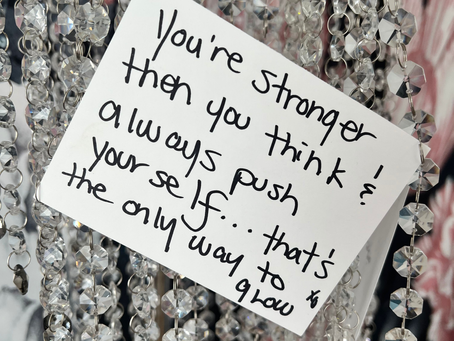 You're Stronger
then you think &
always push
your self... that's
the only way to
glow